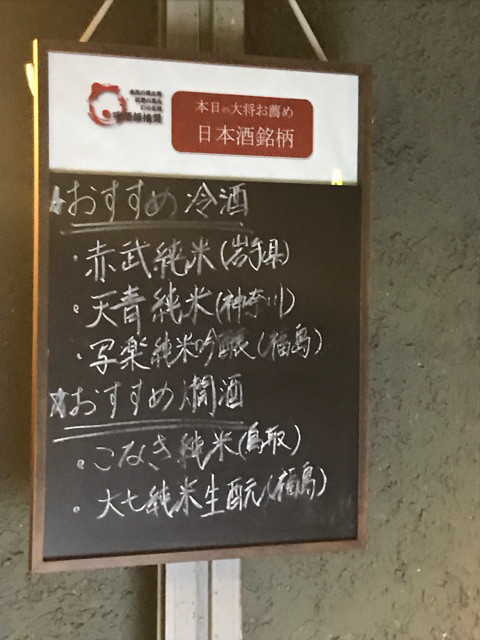 本日の大将お薦め
日本酒銘柄
☆おすすめ冷酒
・赤武純米(岩手県)
。天青純米(神奈川)
・写楽純米吟醸(福島)
☆おすすめ燗酒
。こなき純米(鳥取)
。大七純米生酛(福島)